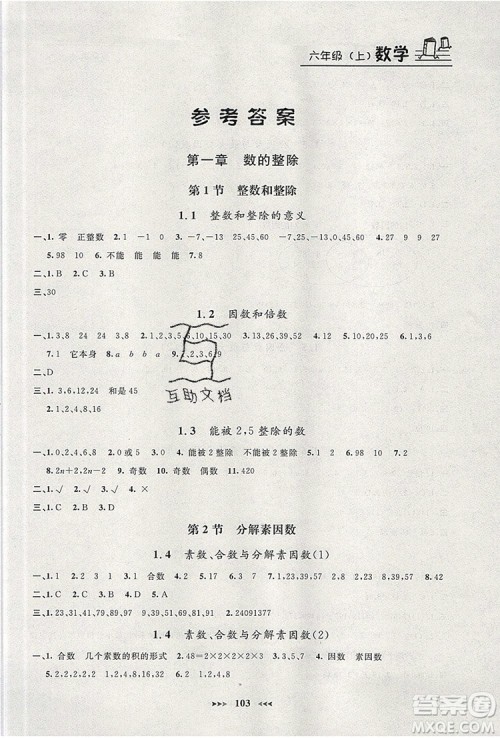 六年级（上）数学
参考答案
第一章 数的整除
第1节 整数和整除
1.1 整数和整除的意义
一、1.零 正整数 2.1 -1 0 3.-7,-13 25,49 0 -7,-13,0 4.9 27 9
5.98 10 6.不能 能 能 能 7.8
二、1.B 2.C 3.B
三、30
1.2 因数和倍数
一、1.3,8 24 24 3,8 2.1,2,3,5,6,10,15,30 3.12 4.39,52 5.18 6.1,2,4,8 1,3,9
7.1 它本身 8.a b b a 9.17 2,3,6,9
二、D
三、1.3,6,12,24 和是45
2.1,2,4,8,16
互助文档
1.3 能被2,5整除的数
一、1.0,2,4,6,8 2.0或5 3.0 4.能被2整除 不能被2整除 5.100 998 6.98 10 7.2
8.2n+2,2n-2 9.1 10.奇数 11.奇数 偶数 12.102
二、1.√ 2.√ 3.× 4.×
三、1.C 2.C
第2节 分解素因数
1.4 素数、合数与分解素因数(1)
一、1.1 2.2 3 1 3.1 4.合数 5.1 6.4 7.6 8.4 9.21
二、1.D 2.A 3.B 4.D
三、1.23,29,31,41,79,89,97 2.13,31,17,71,37,73,79,97 3.24091377
1.4 素数、合数与分解素因数(2)
一、1.合数 几个素数的积的形式 2.48=2×2×2×2×3 3.1,3,5,7 4.18 5.因数 素因数
6.1,2,4,7,14,28 2,2,7
103